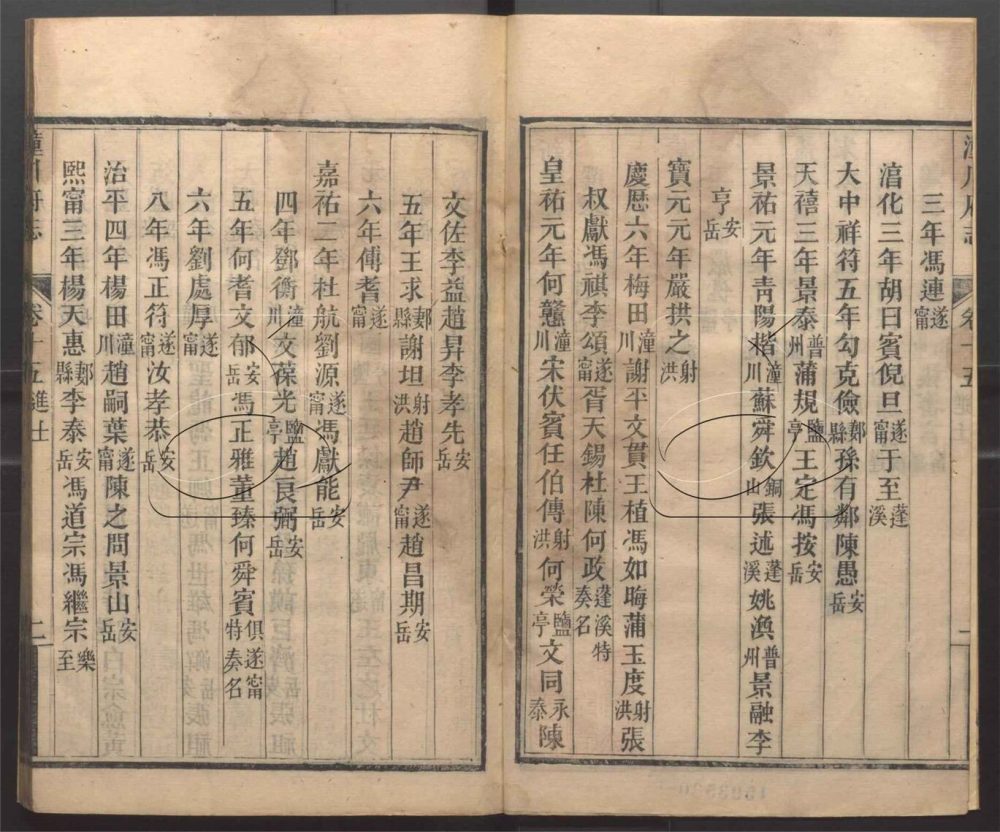 三年馮連遂甯
湻化三年胡曰賓倪旦遂甯于至蓬溪
大中祥符五年勾克儉郪縣孫有鄰陳愚安岳
天禧三年景泰普州蒲規鹽亭王定馮按安岳
景祐元年青陽楷潼川蘇舜欽銅山張述蓬溪姚渙普州景融李
亨安岳
寶元元年嚴拱之射洪
慶歴六年梅田潼川謝平文貫王植馮如晦蒲玉度射洪張
叔獻馮祺李頌遂甯胥天錫杜陳何政蓬溪特奏名
皇祐元年何戇潼川宋伏賓任伯傳射洪何榮鹽亭文同永泰陳
文佐李益趙昇李孝先安岳
五年王求郪縣謝坦射洪趙師尹遂甯趙昌期安岳
六年傅耆遂甯
嘉祐二年杜航劉源遂甯馮獻能安岳
四年鄧衡潼川文葆光鹽亭趙良弼安岳
五年何耆文郁安岳馮正雅董臻何舜賓俱遂甯特奏名
六年劉處厚遂甯
八年馮正符遂甯汝孝恭安岳
治平四年楊田潼川趙嗣葉遂甯陳之問景山安岳
熙甯三年楊天惠郪縣李泰安岳馮道宗馮繼宗樂至
潼川府志 卷十五進士 二